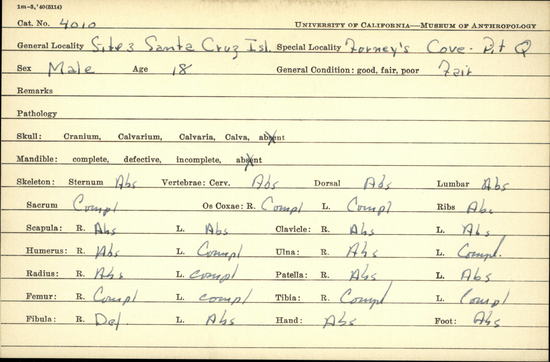 1m-8,'40(5114)
Cat. No. 4010 UNIVERSITY OF CALIFORNIA—MUSEUM OF ANTHROPOLOGY
General Locality Site 3 Santa Cruz Isl. Special Locality Forney's Cove - Pit Q
Sex Male Age 18 General Condition: good, fair, poor Fair
Remarks
Pathology
Skull: Cranium, Calvarium, Calvaria, Calva, absent
Mandible: complete, defective, incomplete, absent
Skeleton: Sternum Abs Vertebrae: Cerv. Abs Dorsal Abs Lumbar Abs
Sacrum Compl Os Coxae: R. Compl L. Compl Ribs Abs
Scapula: R. Abs L. Abs Clavicle: R. Abs L. Abs
Humerus: R. Abs L. Compl Ulna: R. Abs L. Compl.
Radius: R. Abs L. Compl Patella: R. Abs L. Abs
Femur: R. Compl L. Compl Tibia: R. Compl L. Compl
Fibula: R. Def. L. Abs Hand: Abs Foot: Abs